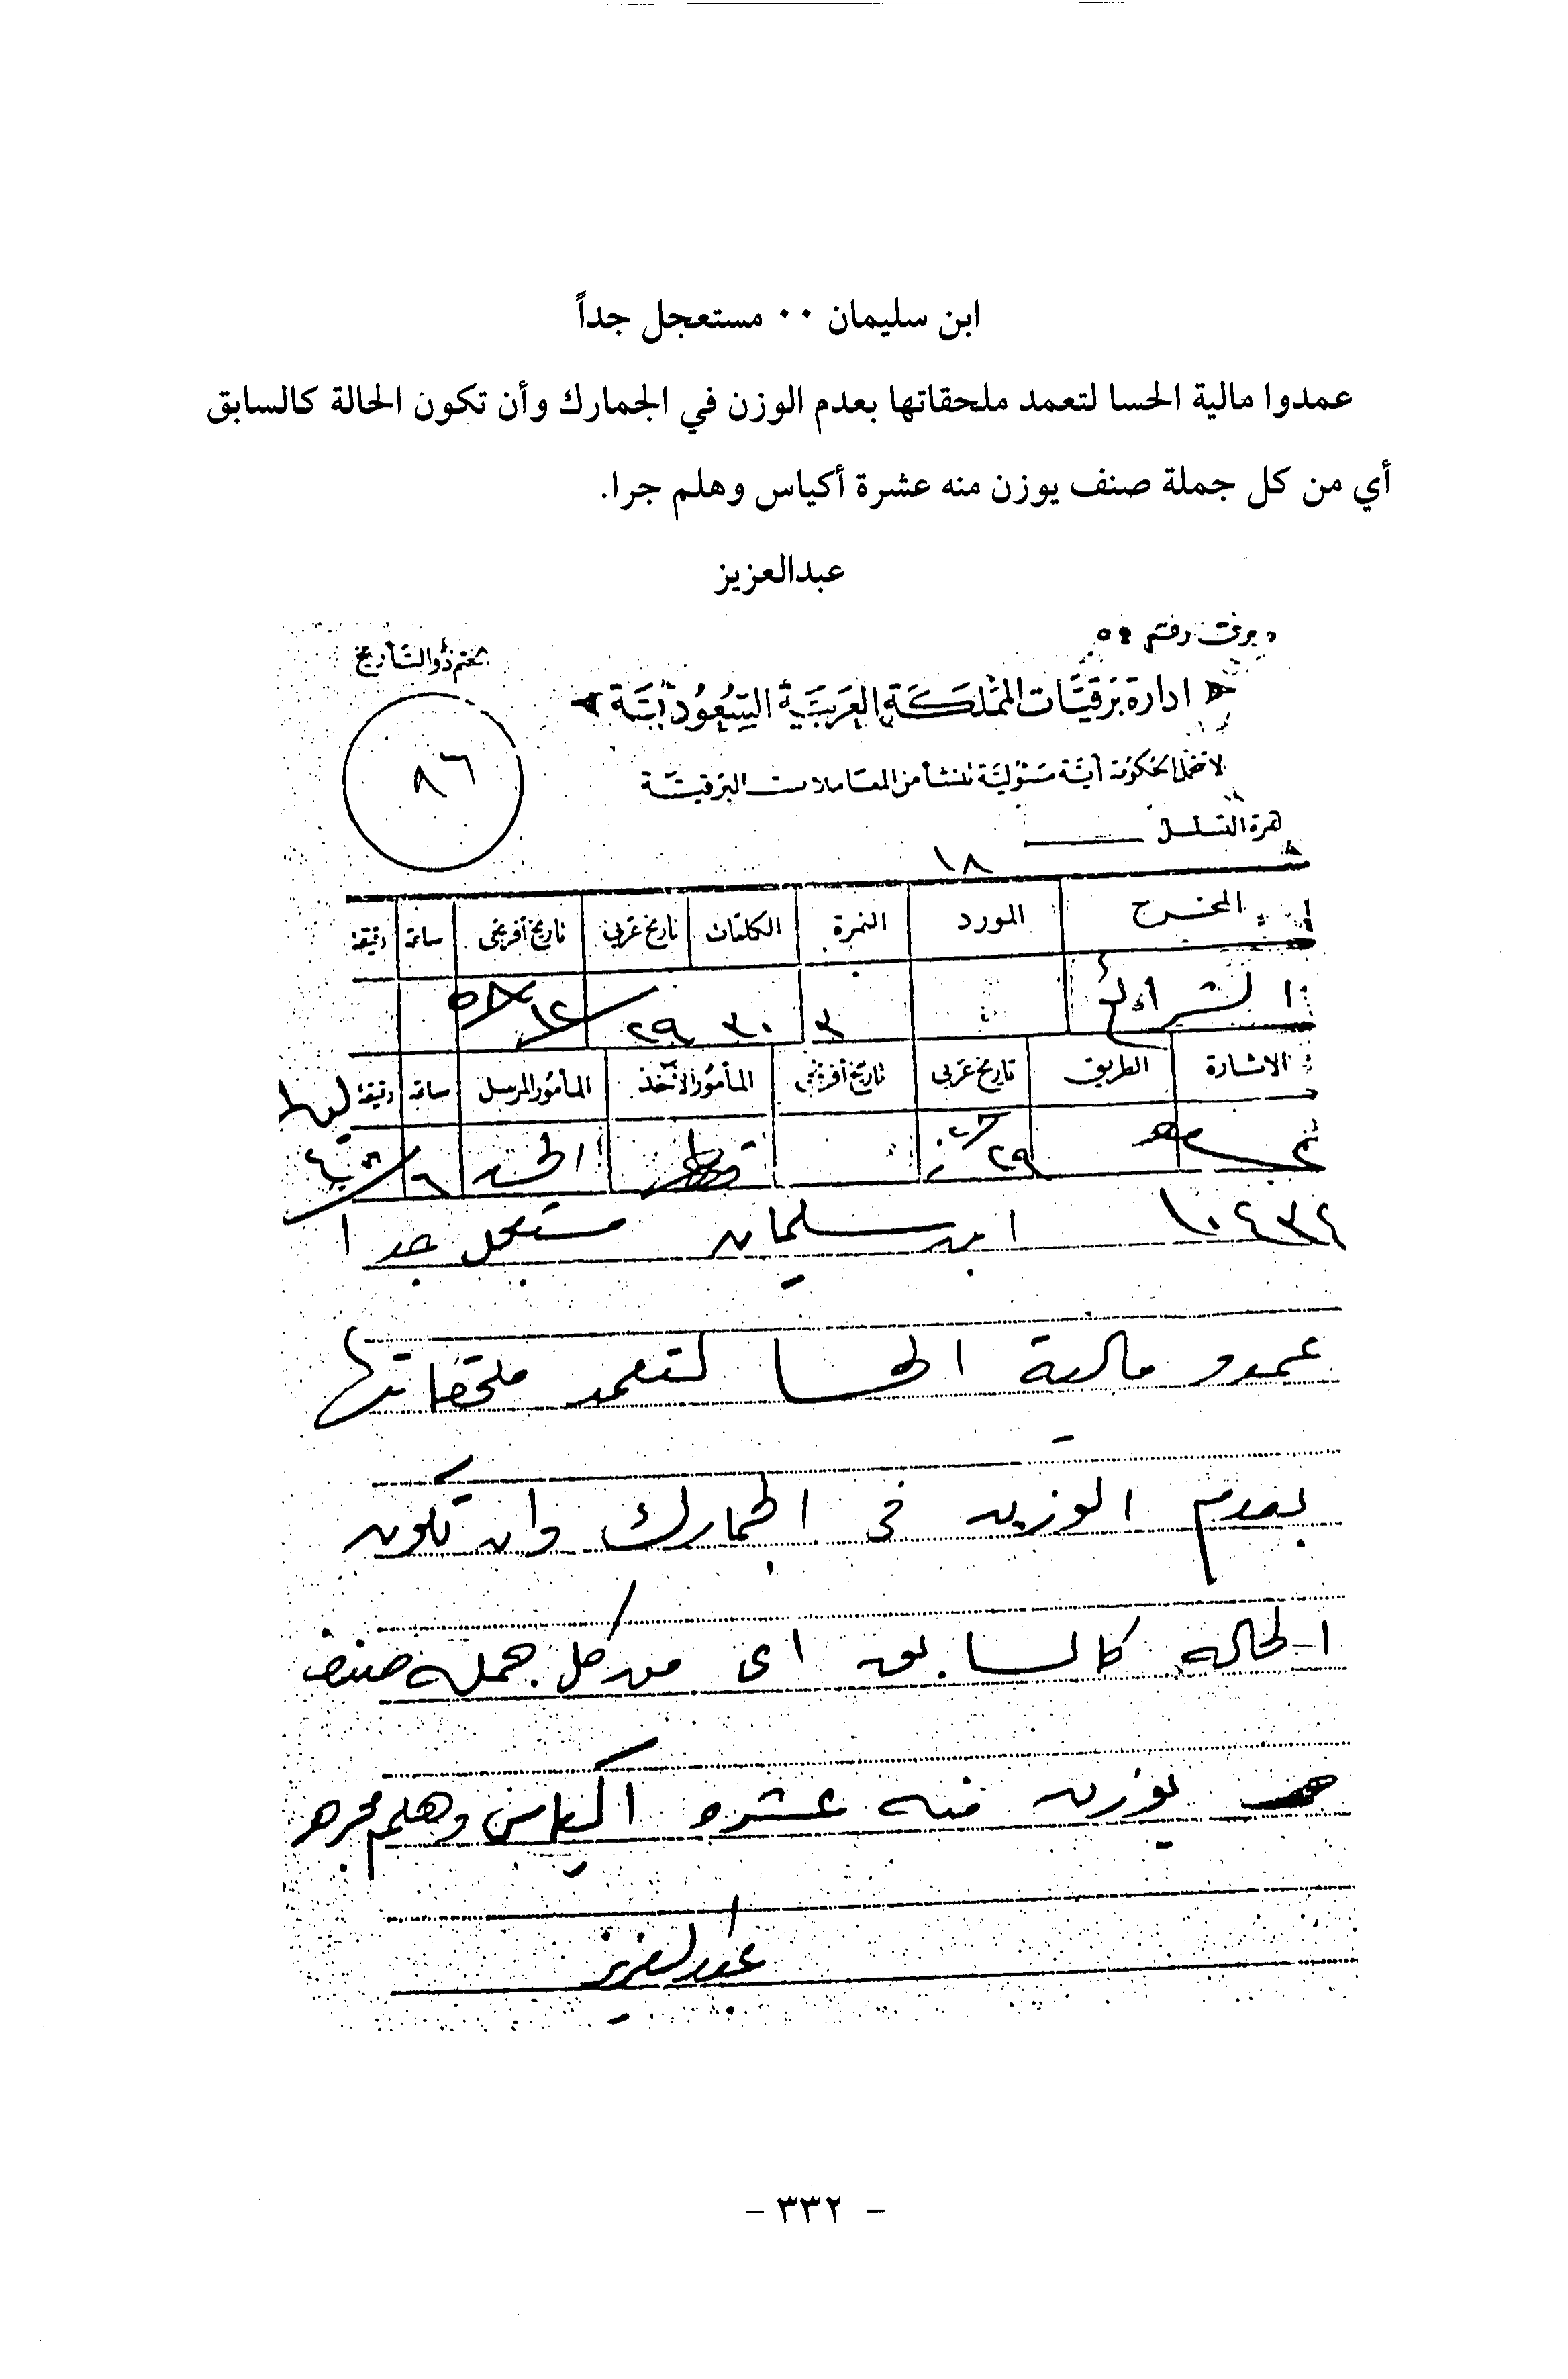 ابن سليمان ٠٠ مستعجل جداً
عمدوا مالية الحسا لتعمد ملحقاتها بعدم الوزن في الجمارك وأن تكون الحالة كالسابق
أي من كل جملة صنف يوزن منه عشرة أكياس وهلم جرا.
عبدالعزيز
برق رقم
يختم ذو التاريخ
ادارة برقيات المملكة العربية السعودية
٨٦
لا تتحمل الحكومة أية مسئولية تنشأ من المعاملات البرقية
نمرة التسلسل
١٨
المخرج المورد النمرة الكلمات تاريخ عربي تاريخ أفرنجي ساعة دقيقة
٣ ٣٠ ٢٩ / ١٢
الاشارة الطريق تاريخ عربي تاريخ أفرنجي المأمور الآخذ المأمور المرسل ساعة دقيقة
٢٩
١٠٤٣٢ ابن سليمان مستعجل جدا
عمدو مالية الحسا لتعمد ملحقاتها
بعدم الوزن في الجمارك وان تكون
الحاله كالسابق اي من كل جمله صنف
يوزن منه عشره اكياس وهلم جره
عبدالعزيز
- ٣٣٢ -